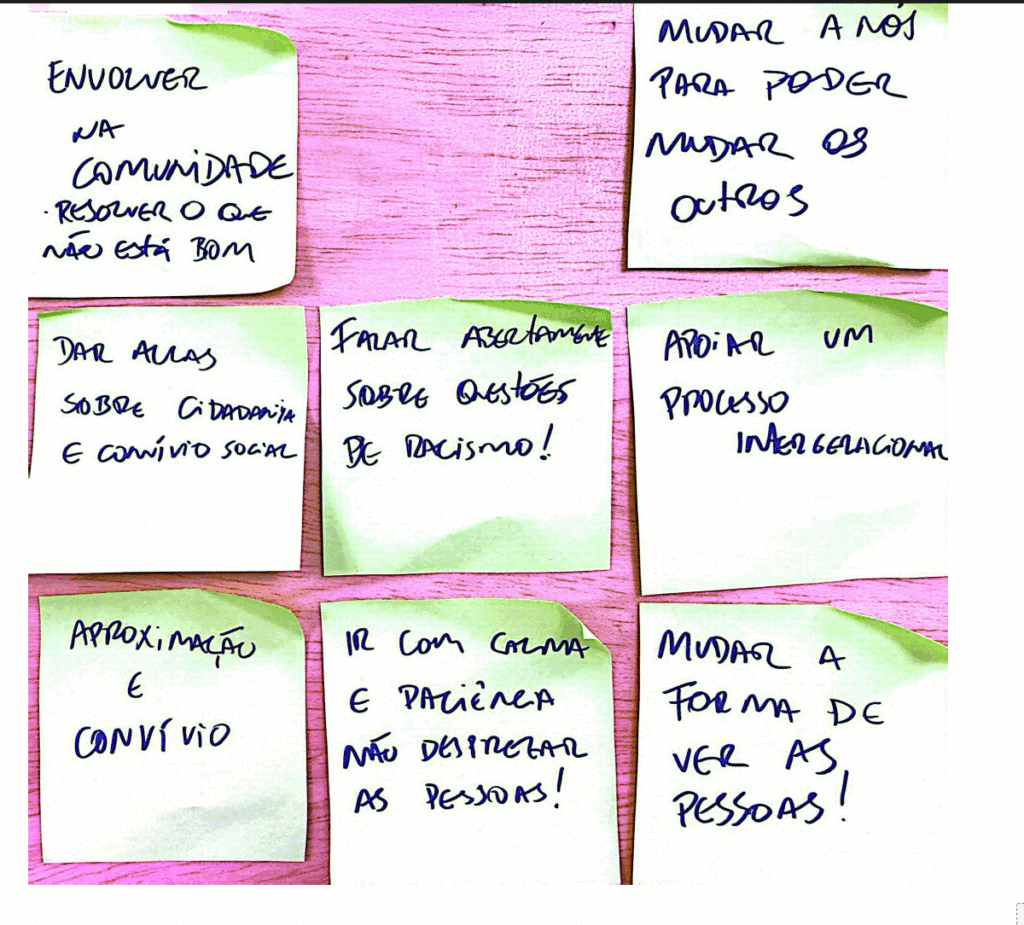 ENVOLVER
NA
COMUNIDADE
. RESOLVER O QUE
NÃO ESTÁ BOM
MUDAR A NÓS
PARA PODER
MUDAR OS
OUTROS
DAR AULAS
SOBRE CIDADANIA
E CONVÍVIO SOCIAL
FALAR ABERTAMENTE
SOBRE QUESTÕES
DE RACISMO!
APOIAR UM
PROCESSO
INTERGERACIONAL
APROXIMAÇÃO
E
CONVÍVIO
IR COM CALMA
E PACIÊNCIA
NÃO DESPREZAR
AS PESSOAS!
MUDAR A
FORMA DE
VER AS
PESSOAS!